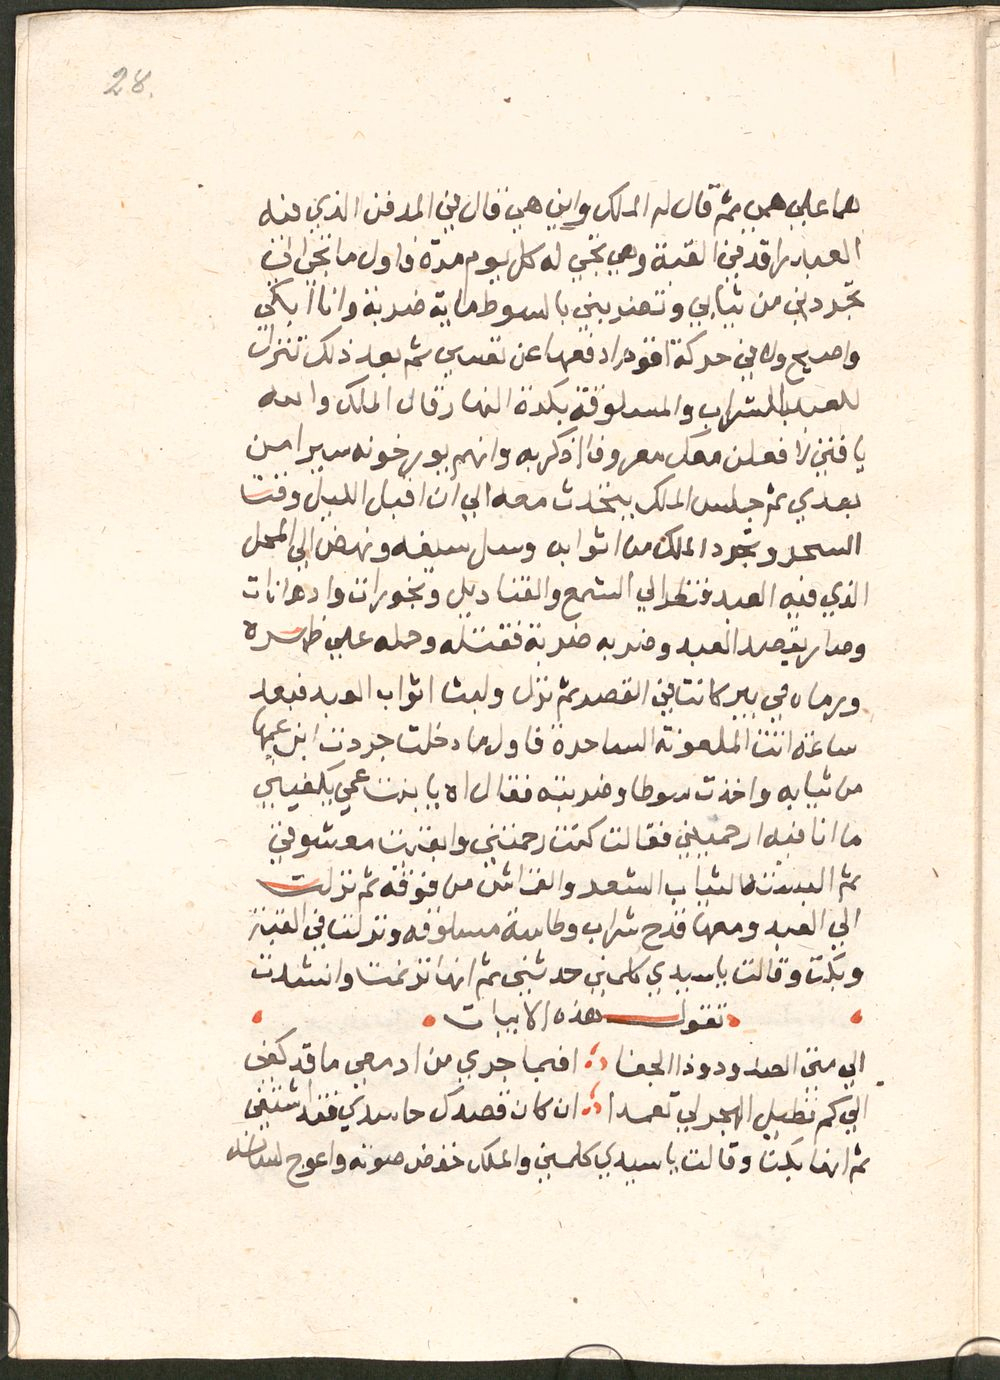 28.
هما علي همي ثم قال له الملك واين هي قال في المدفن الذي فيه
العبد راقد في القبة وهي تجي له كل يوم مرة فاول ما تجي اني
تجردني من ثيابي وتضربني بالسوط ماية ضربة وانا ابكي
واصيح ولا في حركة اقوم ادفعها عن نفسي ثم بعد ذلك تنزل
للعبد بالشراب والمسلوقة بكرة النهار قال الملك والله
يا فتي لافعلن معك معروفا اذكر به وانهم يورخونه سيرا من
بعدي ثم جلس الملك يتحدث معه الي ان اقبل الليل وقت
السحر وتجرد الملك من اثوابه وسل سيفه ونهض الي المحل
الذي فيه العبد فنظر الي الشمع والقناديل وبخورات وادهانات
وصار يقصد العبد وضربه ضربة فقتله وحمله علي ظهره
ورماه في بير كانت في القصر ثم نزل ولبث اثواب العبد فبعد
ساعة اتت الملعونة الساحرة فاول ما دخلت جردت ابن عمها
من ثيابه واخذت سوطا وضربته فقال اه يا بنت عمي يكفيني
ما انا فيه ارحميني فقالت كنت رحمتني وابقيت معشوقي
ثم البسته الثياب الشعر والقماش من فوقه ثم نزلت
الي العبد ومعها قدح شراب وطاسة مسلوقه ونزلت في القبة
وبكت وقالت يا سيدي كلمني حدثني ثم انها ترنمت وانشدت
تقول هذه الابيات
الي متي الصدود وذا الجفا افما جري من ادمعي ما قد كفي
الي كم تطيل الهجر لي تعمدا ان كان قصدك حاسدي فقد اشتفي
ثم انها بكت وقالت يا سيدي كلمني والملك خفض صوته واعوج لسانه